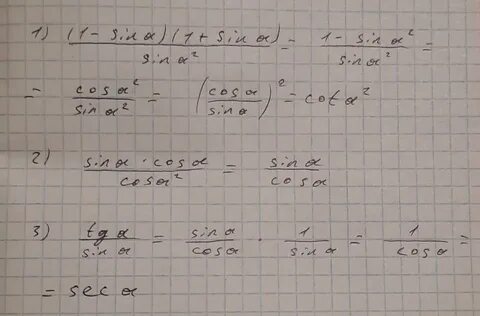 1) (1 - sin α)(1 + sin α) / sin α² = 1 - sin α² / sin α² =
= cos α² / sin α² = (cos α / sin α)² = cot α²
2) sin α · cos α / cos α² = sin α / cos α
3) tg α / sin α = sin α / cos α · 1 / sin α = 1 / cos α =
= sec α